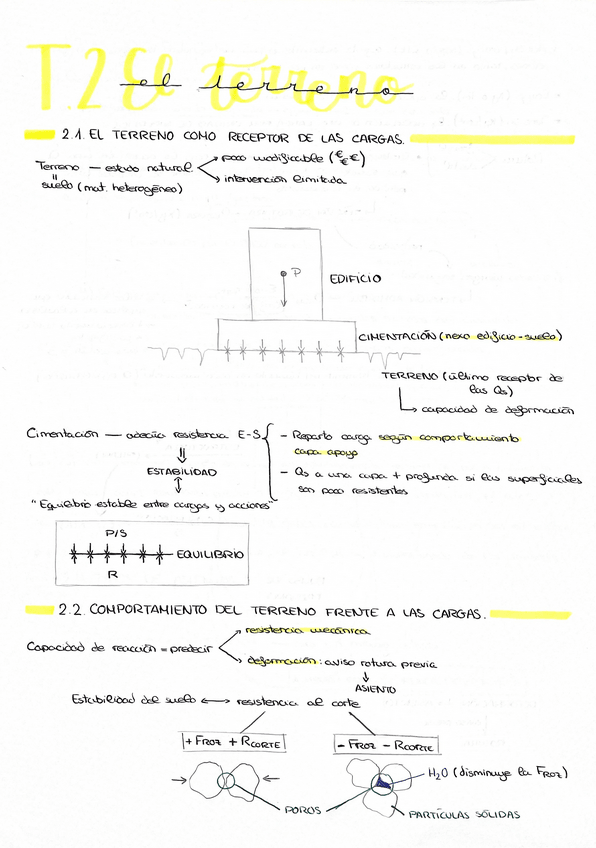 T.2 El terreno
el terreno
2.1. EL TERRENO COMO RECEPTOR DE LAS CARGAS.
Terreno — estado natural
poco modificable (€€€)
intervención limitada
suelo (mat. heterogéneo)
P
EDIFICIO
CIMENTACIÓN (nexo edificio-suelo)
TERRENO (último receptor de
las Qs)
capacidad de deformación
Cimentación — adecúa resistencia E-S
- Reparto carga según comportamiento
capa apoyo
- Qs a una capa + profunda si las superficiales
son poco resistentes
ESTABILIDAD
"Equilibrio estable entre cargas y acciones"
P/S
EQUILIBRIO
R
2.2. COMPORTAMIENTO DEL TERRENO FRENTE A LAS CARGAS.
resistencia mecánica
Capacidad de reacción = predecir
deformación: aviso rotura previa
ASIENTO
Estabilidad del suelo ↔ resistencia al corte
+ FROZ + RCORTE
- FROZ - RCORTE
H2O (disminuye la FROZ)
POROS
PARTÍCULAS SÓLIDAS